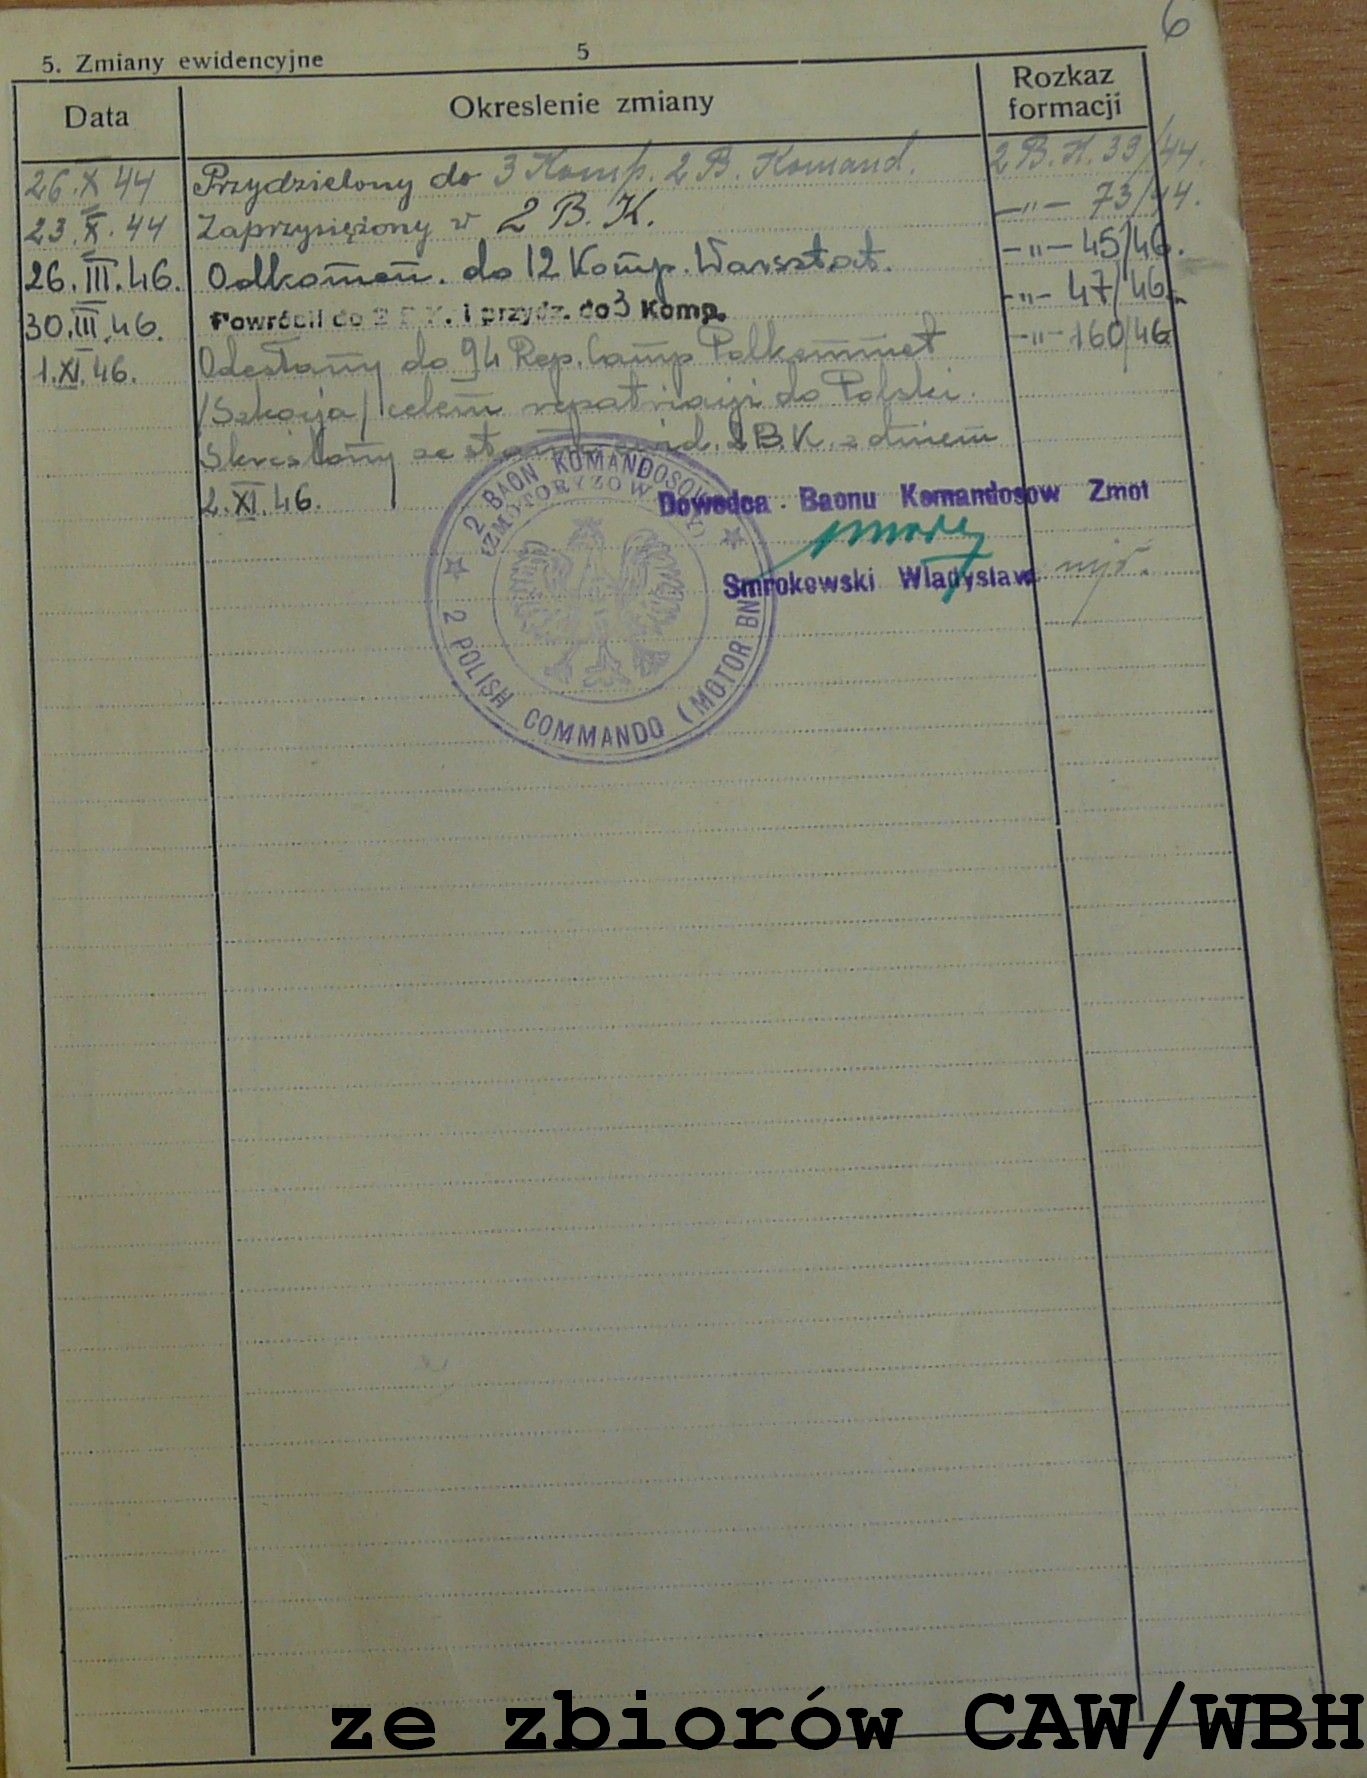 6
5. Zmiany ewidencyjne 5
Data Okreslenie zmiany Rozkaz formacji
26.X 44 Przydzielony do 3 Komp. 2 B. Komand. 2 B.K. 33/44.
23.X.44 Zaprzysiężony w 2 B. K. -"- 73/44.
26.III.46. Odkomen. do 12 Komp. Warsztat. -"- 45/46.
30.III.46. Powrócił do 2 B.K. i przydz. do 3 Komp. -"- 47/46.
1.XI.46. Odesłany do 94 Rep. Camp Polkemmet -"- 160/46
/Szkocja/ celem repatriacji do Polski.
Skreślony ze stanu ewid. 2 B.K. z dniem
2.XI.46.
2 BAON KOMANDOSOW
(ZMOTORYZOWANY)
2 POLISH COMMANDO (MOTOR BN)
Dowodca Baonu Komandosow Zmot
Smrokowski Wladyslaw mjr.
ze zbiorów CAW/WBH